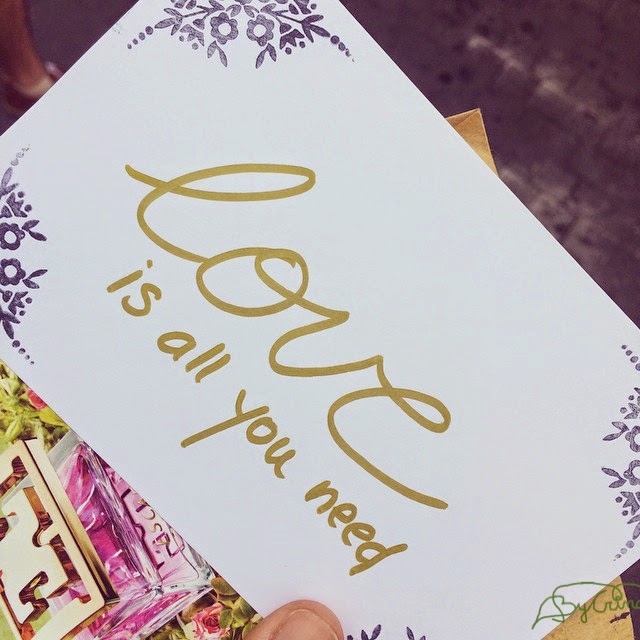 love
is all you need